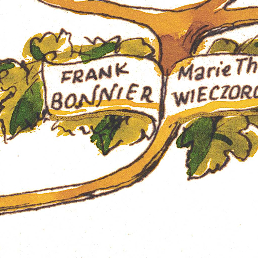 FRANK
BONNIER
Marie Th
WIECZORO